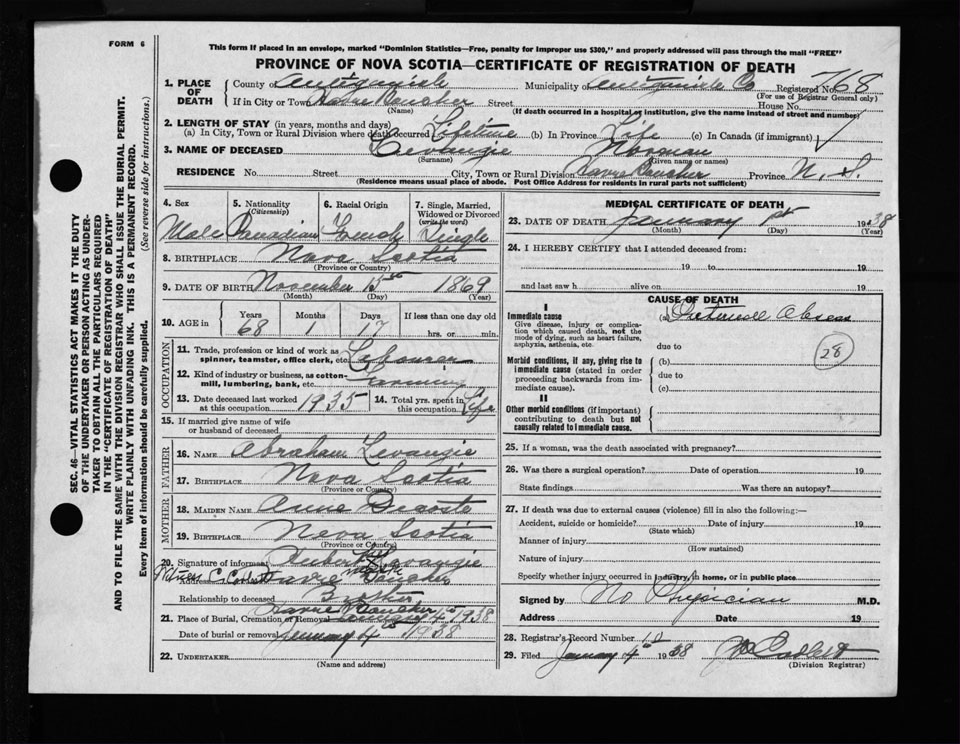 FORM 6
This form if placed in an envelope, marked "Dominion Statistics—Free, penalty for improper use $300," and properly addressed will pass through the mail "FREE"
PROVINCE OF NOVA SCOTIA—CERTIFICATE OF REGISTRATION OF DEATH
1. PLACE OF DEATH
County of Antigonish Municipality of Antigonish Co Registered No. 768
(For use of Registrar General only)
If in City or Town Havre Boucher Street House No.
(Name) (If death occurred in a hospital or institution, give the name instead of street and number)
2. LENGTH OF STAY (in years, months and days)
(a) In City, Town or Rural Division where death occurred Lifetime (b) In Province Life (c) In Canada (if immigrant)
3. NAME OF DECEASED Levangie Norman
(Surname) (Given name or names)
RESIDENCE No. Street City, Town or Rural Division Havre Boucher Province N. S.
(Residence means usual place of abode. Post Office Address for residents in rural parts not sufficient)
4. Sex 5. Nationality (Citizenship) 6. Racial Origin 7. Single, Married, Widowed or Divorced (write the word)
Male Canadian French Single
8. BIRTHPLACE Nova Scotia
(Province or Country)
9. DATE OF BIRTH November 15th 1869
(Month) (Day) (Year)
10. AGE in Years Months Days If less than one day
68 1 17 hrs. or min.
OCCUPATION
11. Trade, profession or kind of work as spinner, teamster, office clerk, etc.
12. Kind of industry or business, as cotton-mill, lumbering, bank, etc. Farming
13. Date deceased last worked at this occupation 1935 14. Total yrs. spent in this occupation Life
15. If married give name of wife or husband of deceased
FATHER
16. NAME Abraham Levangie
17. BIRTHPLACE Nova Scotia
(Province or Country)
MOTHER
18. MAIDEN NAME Anne Decoste
19. BIRTHPLACE Nova Scotia
(Province or Country)
20. Signature of informant Levangie
Address Havre Boucher
Relationship to deceased Brother
21. Place of Burial, Cremation or Removal Havre Boucher 1938
Date of burial or removal January 4th 1938
22. UNDERTAKER
(Name and address)
MEDICAL CERTIFICATE OF DEATH
23. DATE OF DEATH January 1st 1938
(Month) (Day) (Year)
24. I HEREBY CERTIFY that I attended deceased from:
19 to 19
and last saw h alive on 19
CAUSE OF DEATH
I
Immediate cause (a) Internal Abscess
Give disease, injury or complication which caused death, not the mode of dying, such as heart failure, asphyxia, asthenia, etc.
due to
28
Morbid conditions, if any, giving rise to immediate cause (stated in order proceeding backwards from immediate cause).
(b)
due to
(c)
II
Other morbid conditions (if important) contributing to death but not causally related to immediate cause.
25. If a woman, was the death associated with pregnancy?
26. Was there a surgical operation? Date of operation 19
State findings Was there an autopsy?
27. If death was due to external causes (violence) fill in also the following:—
Accident, suicide or homicide? Date of injury 19
(State which)
Manner of injury
(How sustained)
Nature of injury
Specify whether injury occurred in industry, in home, or in public place
Signed by No Physician M.D.
Address Date 19
28. Registrar's Record Number
29. Filed January 4th 1938
(Division Registrar)
SEC. 46—VITAL STATISTICS ACT MAKES IT THE DUTY
OF THE UNDERTAKER OR PERSON ACTING AS UNDER-
TAKER TO OBTAIN ALL THE PARTICULARS REQUIRED
IN THE "CERTIFICATE OF REGISTRATION OF DEATH"
AND TO FILE THE SAME WITH THE DIVISION REGISTRAR WHO SHALL ISSUE THE BURIAL PERMIT.
WRITE PLAINLY WITH UNFADING INK. THIS IS A PERMANENT RECORD.
Every item of information should be carefully supplied. (See reverse side for instructions.)